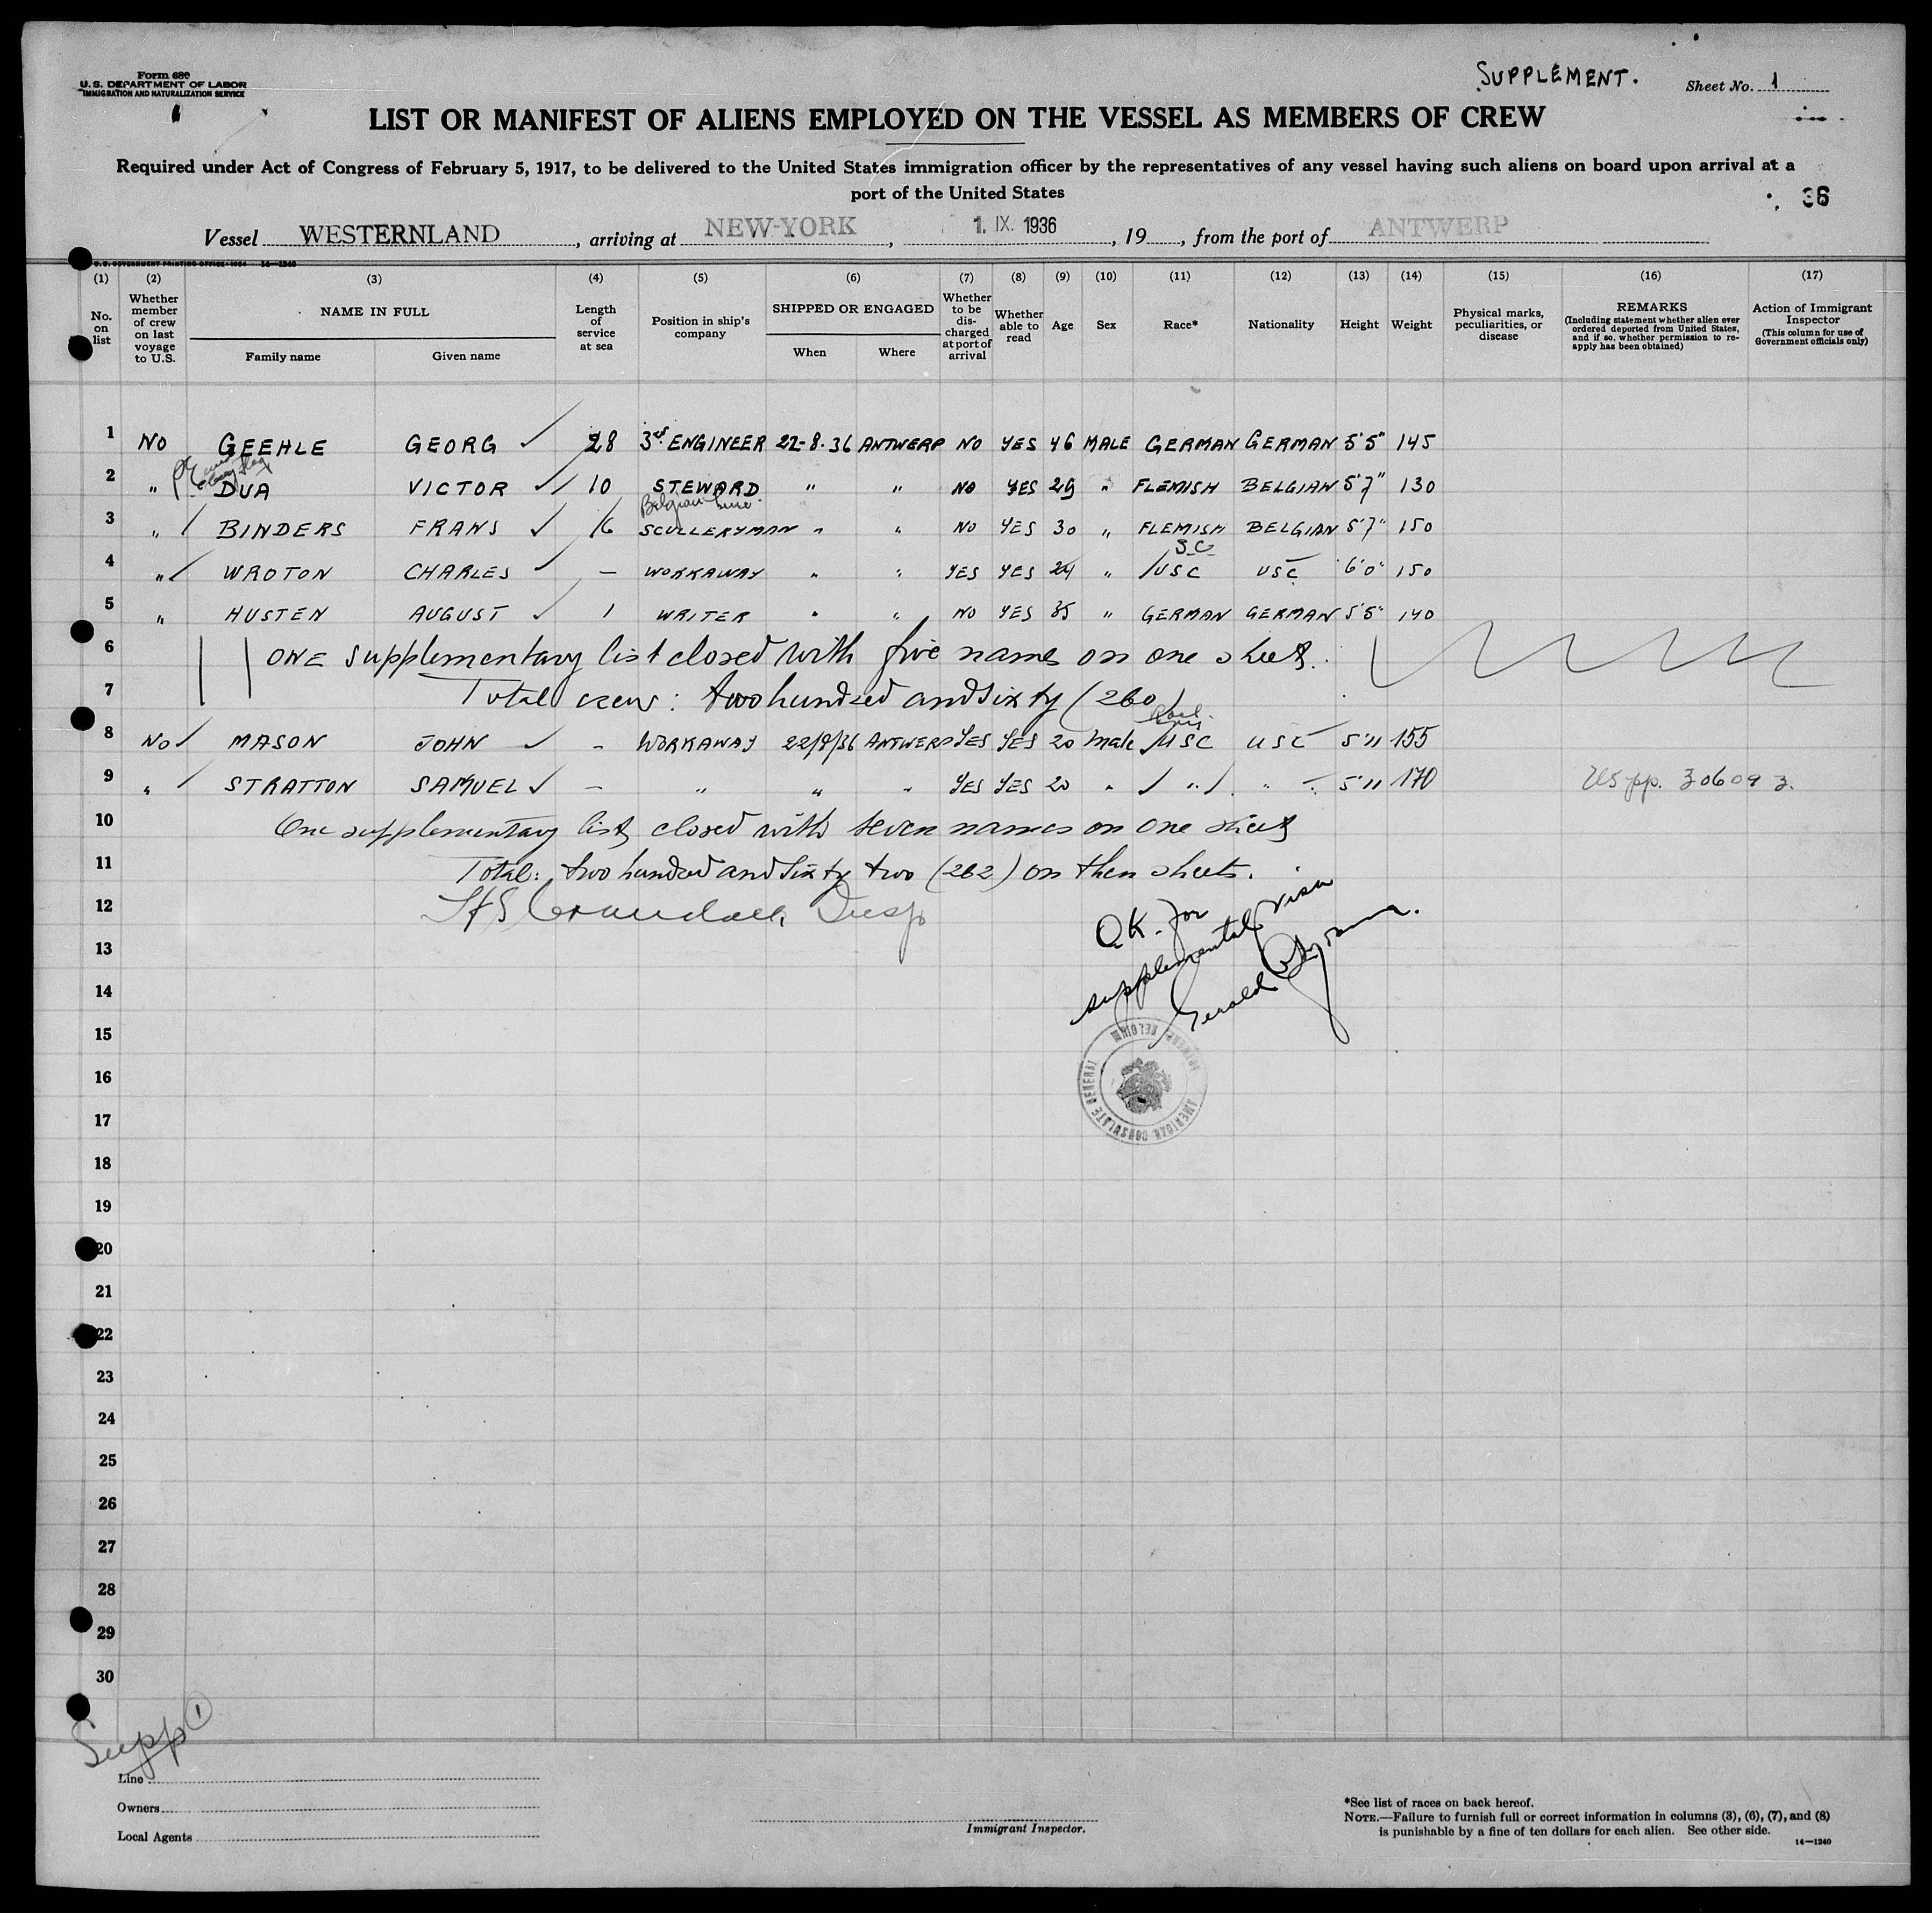 Form 680
U.S. DEPARTMENT OF LABOR
IMMIGRATION AND NATURALIZATION SERVICE
SUPPLEMENT. Sheet No. 1
LIST OR MANIFEST OF ALIENS EMPLOYED ON THE VESSEL AS MEMBERS OF CREW
Required under Act of Congress of February 5, 1917, to be delivered to the United States immigration officer by the representatives of any vessel having such aliens on board upon arrival at a
port of the United States
36
Vessel WESTERNLAND, arriving at NEW-YORK, 1. IX. 1936, 19, from the port of ANTWERP
U. S. GOVERNMENT PRINTING OFFICE: 1934 14—1240
(1) (2) (3) (4) (5) (6) (7) (8) (9) (10) (11) (12) (13) (14) (15) (16) (17)
No. on list
Whether member of crew on last voyage to U.S.
NAME IN FULL
Family name Given name
Length of service at sea
Position in ship's company
SHIPPED OR ENGAGED
When Where
Whether to be discharged at port of arrival
Whether able to read
Age
Sex
Race*
Nationality
Height
Weight
Physical marks, peculiarities, or disease
REMARKS
(Including statement whether alien ever ordered deported from United States, and if so, whether permission to reapply has been obtained)
Action of Immigrant Inspector
(This column for use of Government officials only)
1 NO GEEHLE GEORG 28 3rd ENGINEER 22-8-36 ANTWERP NO YES 46 MALE GERMAN GERMAN 5'5" 145
2 " DUA VICTOR 10 STEWARD " " NO YES 29 " FLEMISH BELGIAN 5'7" 130
Belgian Line
3 " BINDERS FRANS 6 SCULLERYMAN " " NO YES 30 " FLEMISH BELGIAN 5'7" 150
4 " WROTON CHARLES — WORKAWAY " " YES YES 24 " USC USC 6'0" 150
5 " HUSTEN AUGUST 1 WRITER " " NO YES 35 " GERMAN GERMAN 5'5" 140
6 ONE supplementary list closed with five names on one sheet.
7 Total crew: two hundred and sixty (260)
8 No MASON JOHN - WORKAWAY 22/8/36 ANTWERP YES YES 20 Male USC USC 5'11 155
9 " STRATTON SAMUEL — " " " YES YES 20 " " " 5'11 170 US pp. 306093.
10 One supplementary list closed with seven names on one sheet
11 Total: two hundred and sixty two (262) on then sheets.
12
O.K. for
supplemental visa
Gerald
13
14
15
AMERICAN CONSULATE GENERAL ANTWERP BELGIUM
16
17
18
19
20
21
22
23
24
25
26
27
28
29
30
Supp 1
Line
Owners
Local Agents
Immigrant Inspector.
*See list of races on back hereof.
NOTE.—Failure to furnish full or correct information in columns (3), (6), (7), and (8)
is punishable by a fine of ten dollars for each alien. See other side.
14—1240